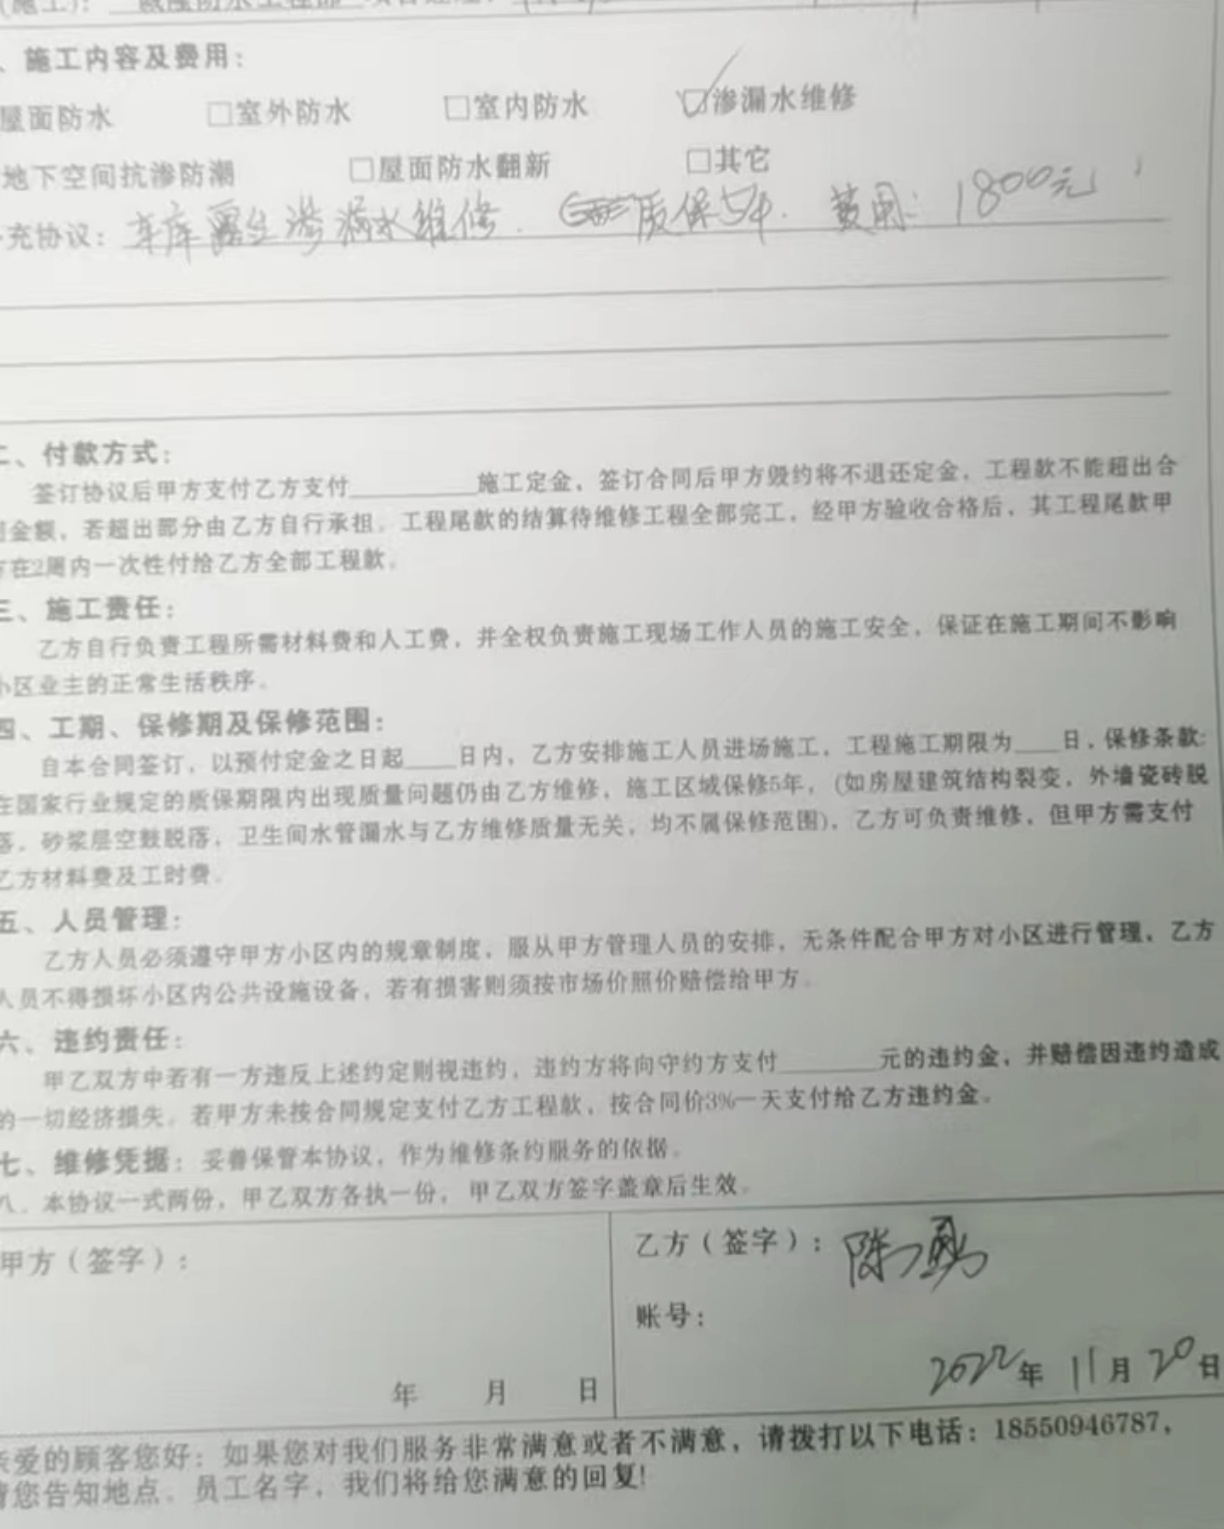 (施工): 防水工程部 项目经理:
、施工内容及费用:
屋面防水 □室外防水 □室内防水 ☑渗漏水维修
地下空间抗渗防潮 □屋面防水翻新 □其它
充协议: 车库 渗漏水维修. 质保5年. 费用: 1800元
二、付款方式:
签订协议后甲方支付乙方支付________施工定金，签订合同后甲方毁约将不退还定金，工程款不能超出合
同金额，若超出部分由乙方自行承担。工程尾款的结算待维修工程全部完工，经甲方验收合格后，其工程尾款甲
方在2周内一次性付给乙方全部工程款。
三、施工责任:
乙方自行负责工程所需材料费和人工费，并全权负责施工现场工作人员的施工安全，保证在施工期间不影响
小区业主的正常生活秩序。
四、工期、保修期及保修范围:
自本合同签订，以预付定金之日起____日内，乙方安排施工人员进场施工，工程施工期限为____日，保修条款:
在国家行业规定的质保期限内出现质量问题仍由乙方维修，施工区域保修5年，(如房屋建筑结构裂变，外墙瓷砖脱
落，砂浆层空鼓脱落，卫生间水管漏水与乙方维修质量无关，均不属保修范围)，乙方可负责维修，但甲方需支付
乙方材料费及工时费。
五、人员管理:
乙方人员必须遵守甲方小区内的规章制度，服从甲方管理人员的安排，无条件配合甲方对小区进行管理，乙方
人员不得损坏小区内公共设施设备，若有损害则须按市场价照价赔偿给甲方。
六、违约责任:
甲乙双方中若有一方违反上述约定则视违约，违约方将向守约方支付________元的违约金，并赔偿因违约造成
的一切经济损失。若甲方未按合同规定支付乙方工程款，按合同价3%一天支付给乙方违约金。
七、维修凭据: 妥善保管本协议，作为维修条约服务的依据。
八、本协议一式两份，甲乙双方各执一份， 甲乙双方签字盖章后生效。
甲方（签字）:
年 月 日
乙方（签字）: 陈勇
账号:
2022年 11月 20日
亲爱的顾客您好: 如果您对我们服务非常满意或者不满意，请拨打以下电话: 18550946787,
请您告知地点、员工名字，我们将给您满意的回复!